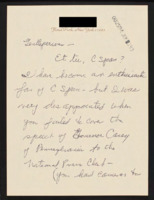 Gentlepersons —
Et tu, C Span?
I have become an enthusiastic
fan of C Span — but I was
very disappointed when
you failed to cover the
speech of Governor Casey
of Pennsylvania to the
National Press Club —
(you had Common Gov